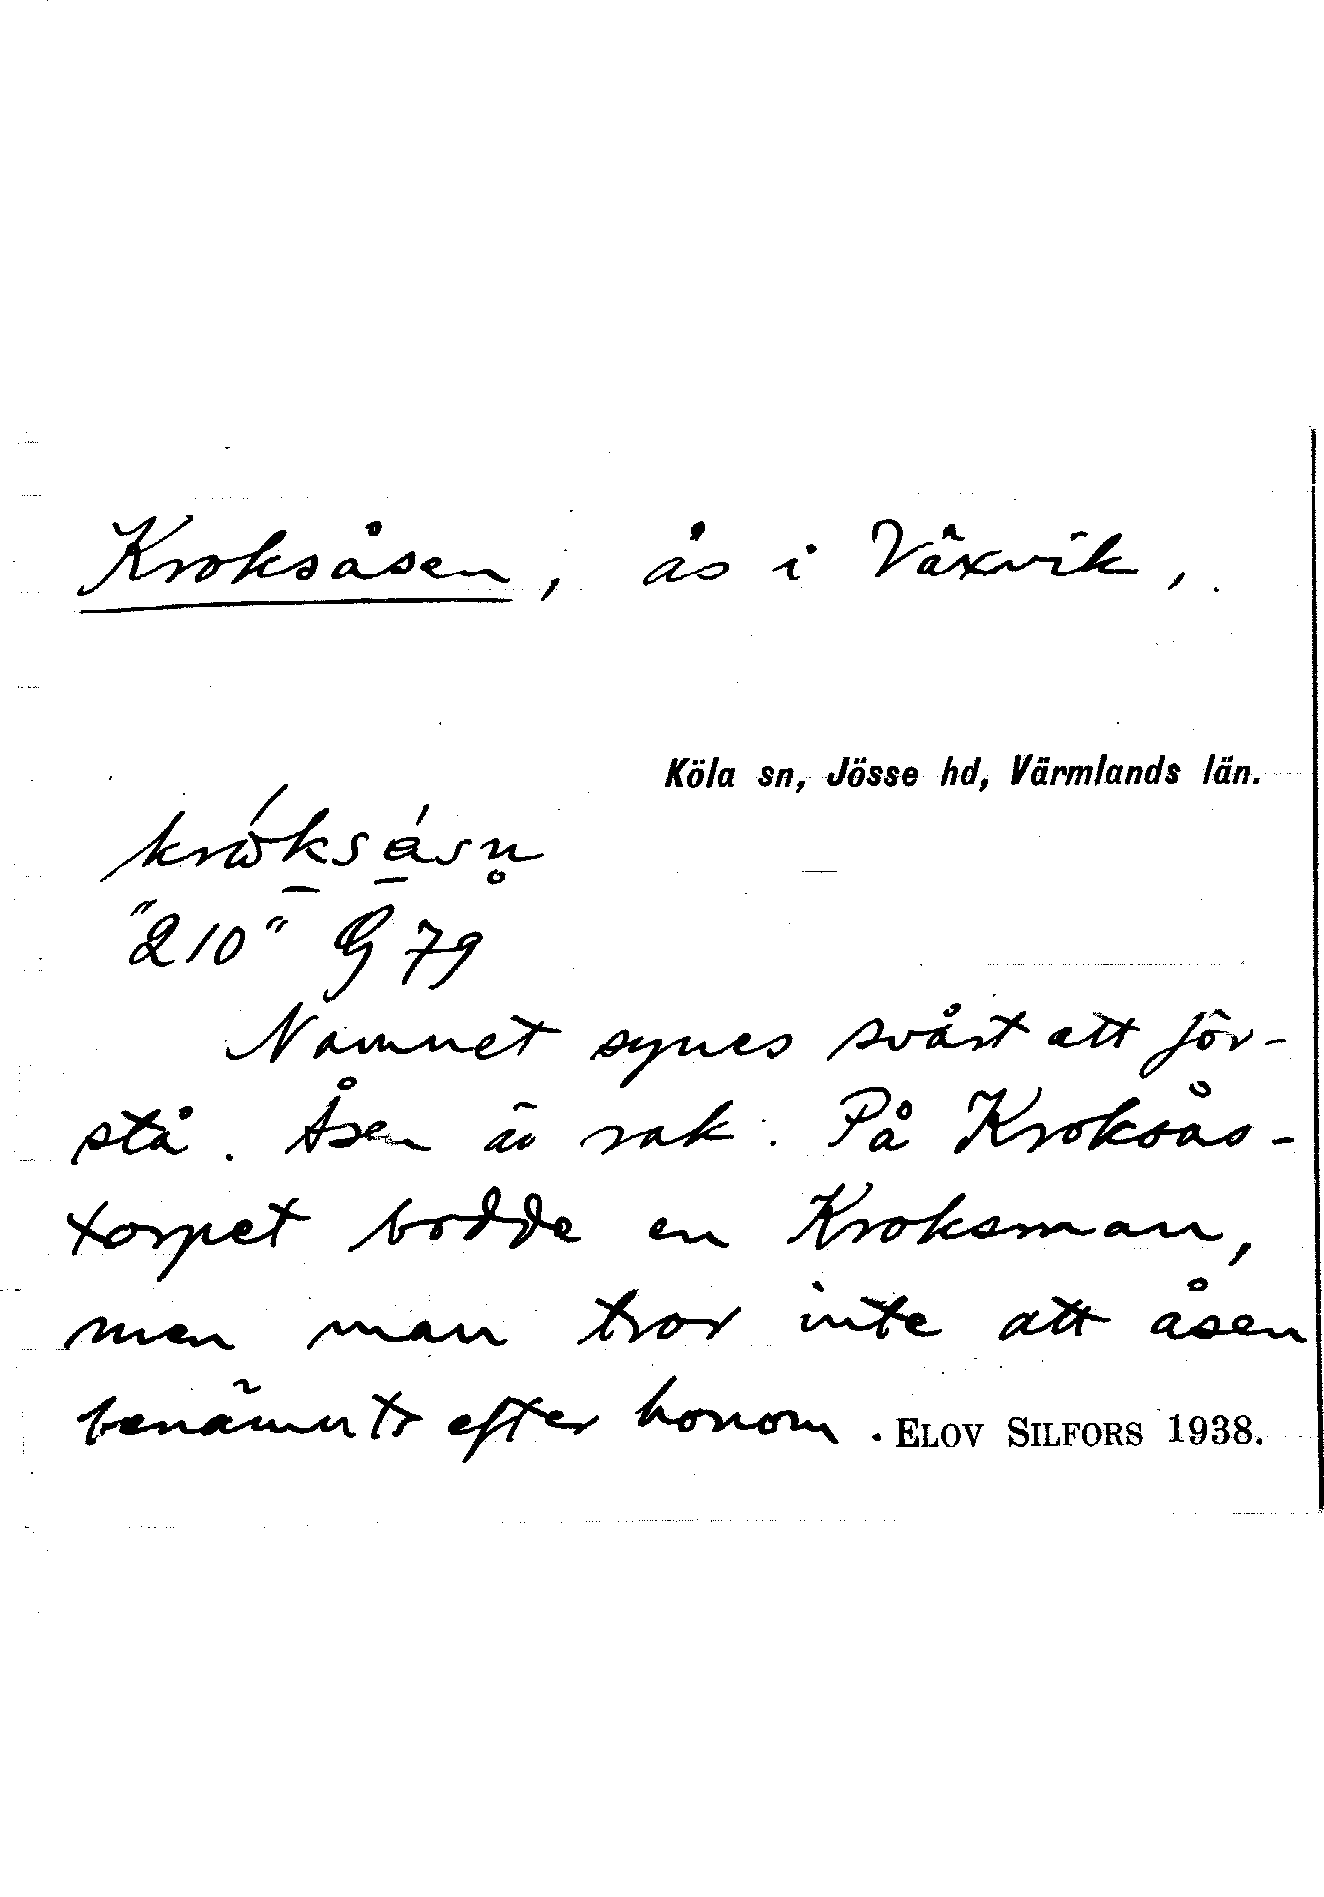 Kroksåsen, ås i Växvik,.
Köla sn, Jösse hd, Värmlands län.
"210" G 79
Namnet synes svårt att för-
stå. Åsen är rak. På Kroksås-
torpet bodde en Kroksman,
men man tror inte att åsen
benämnts efter honom. ELOV SILFORS 1938.